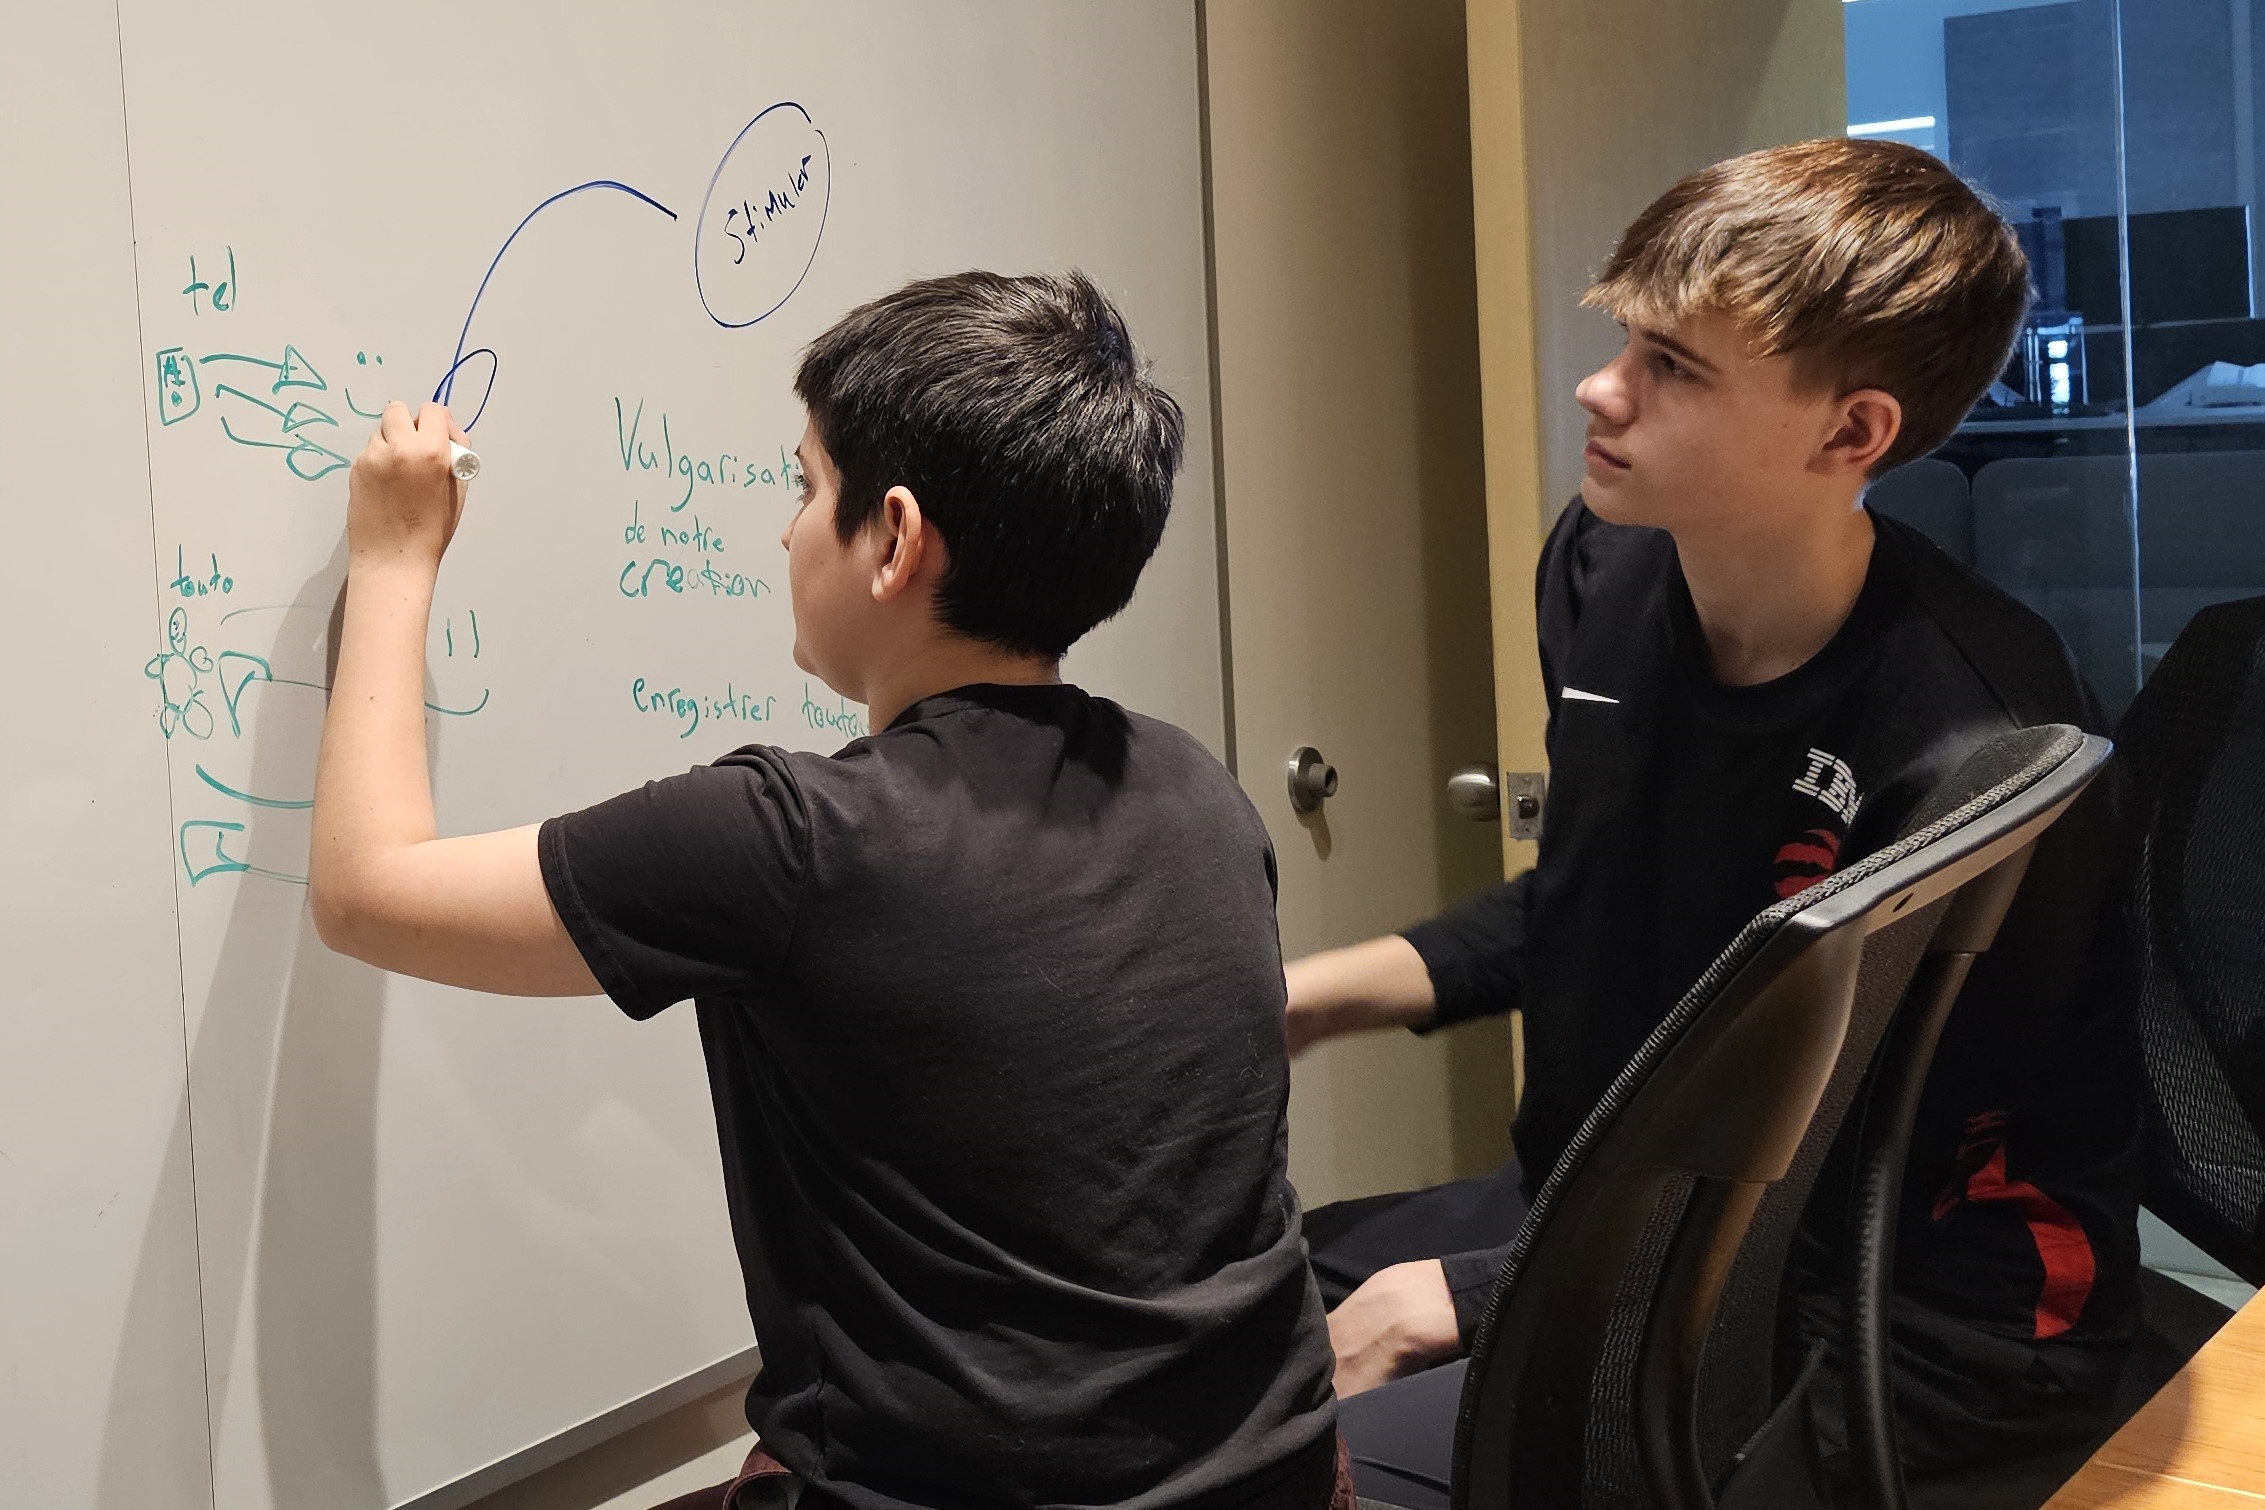 Stimuler
tel
Vulgarisati
de notre
creation
touto
enregistrer toutou